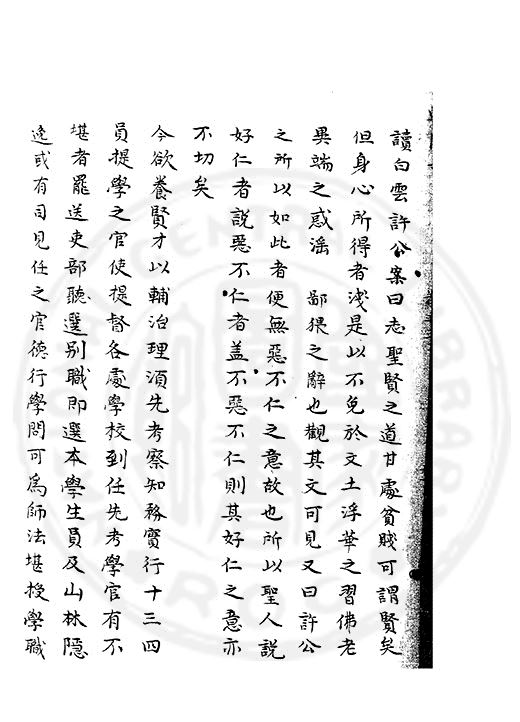 讀白雲許公案曰志聖賢之道甘處貧賤可謂賢矣
但身心所得者淺是以不免於文土浮華之習佛老
異端之惑滛　鄙猥之辭也觀其文可見又曰許公
之所以如此者便無惡不仁之意故也所以聖人說
好仁者說惡不仁者盖不惡不仁則其好仁之意亦
不切矣
今欲養賢才以輔治理湏先考察知務實行十三四
員提學之官使提督各處學校到任先考學官有不
堪者罷送吏部聽選别職即選本學生員及山林隱
逸或有司見任之官德行學問可為師法堪授學職